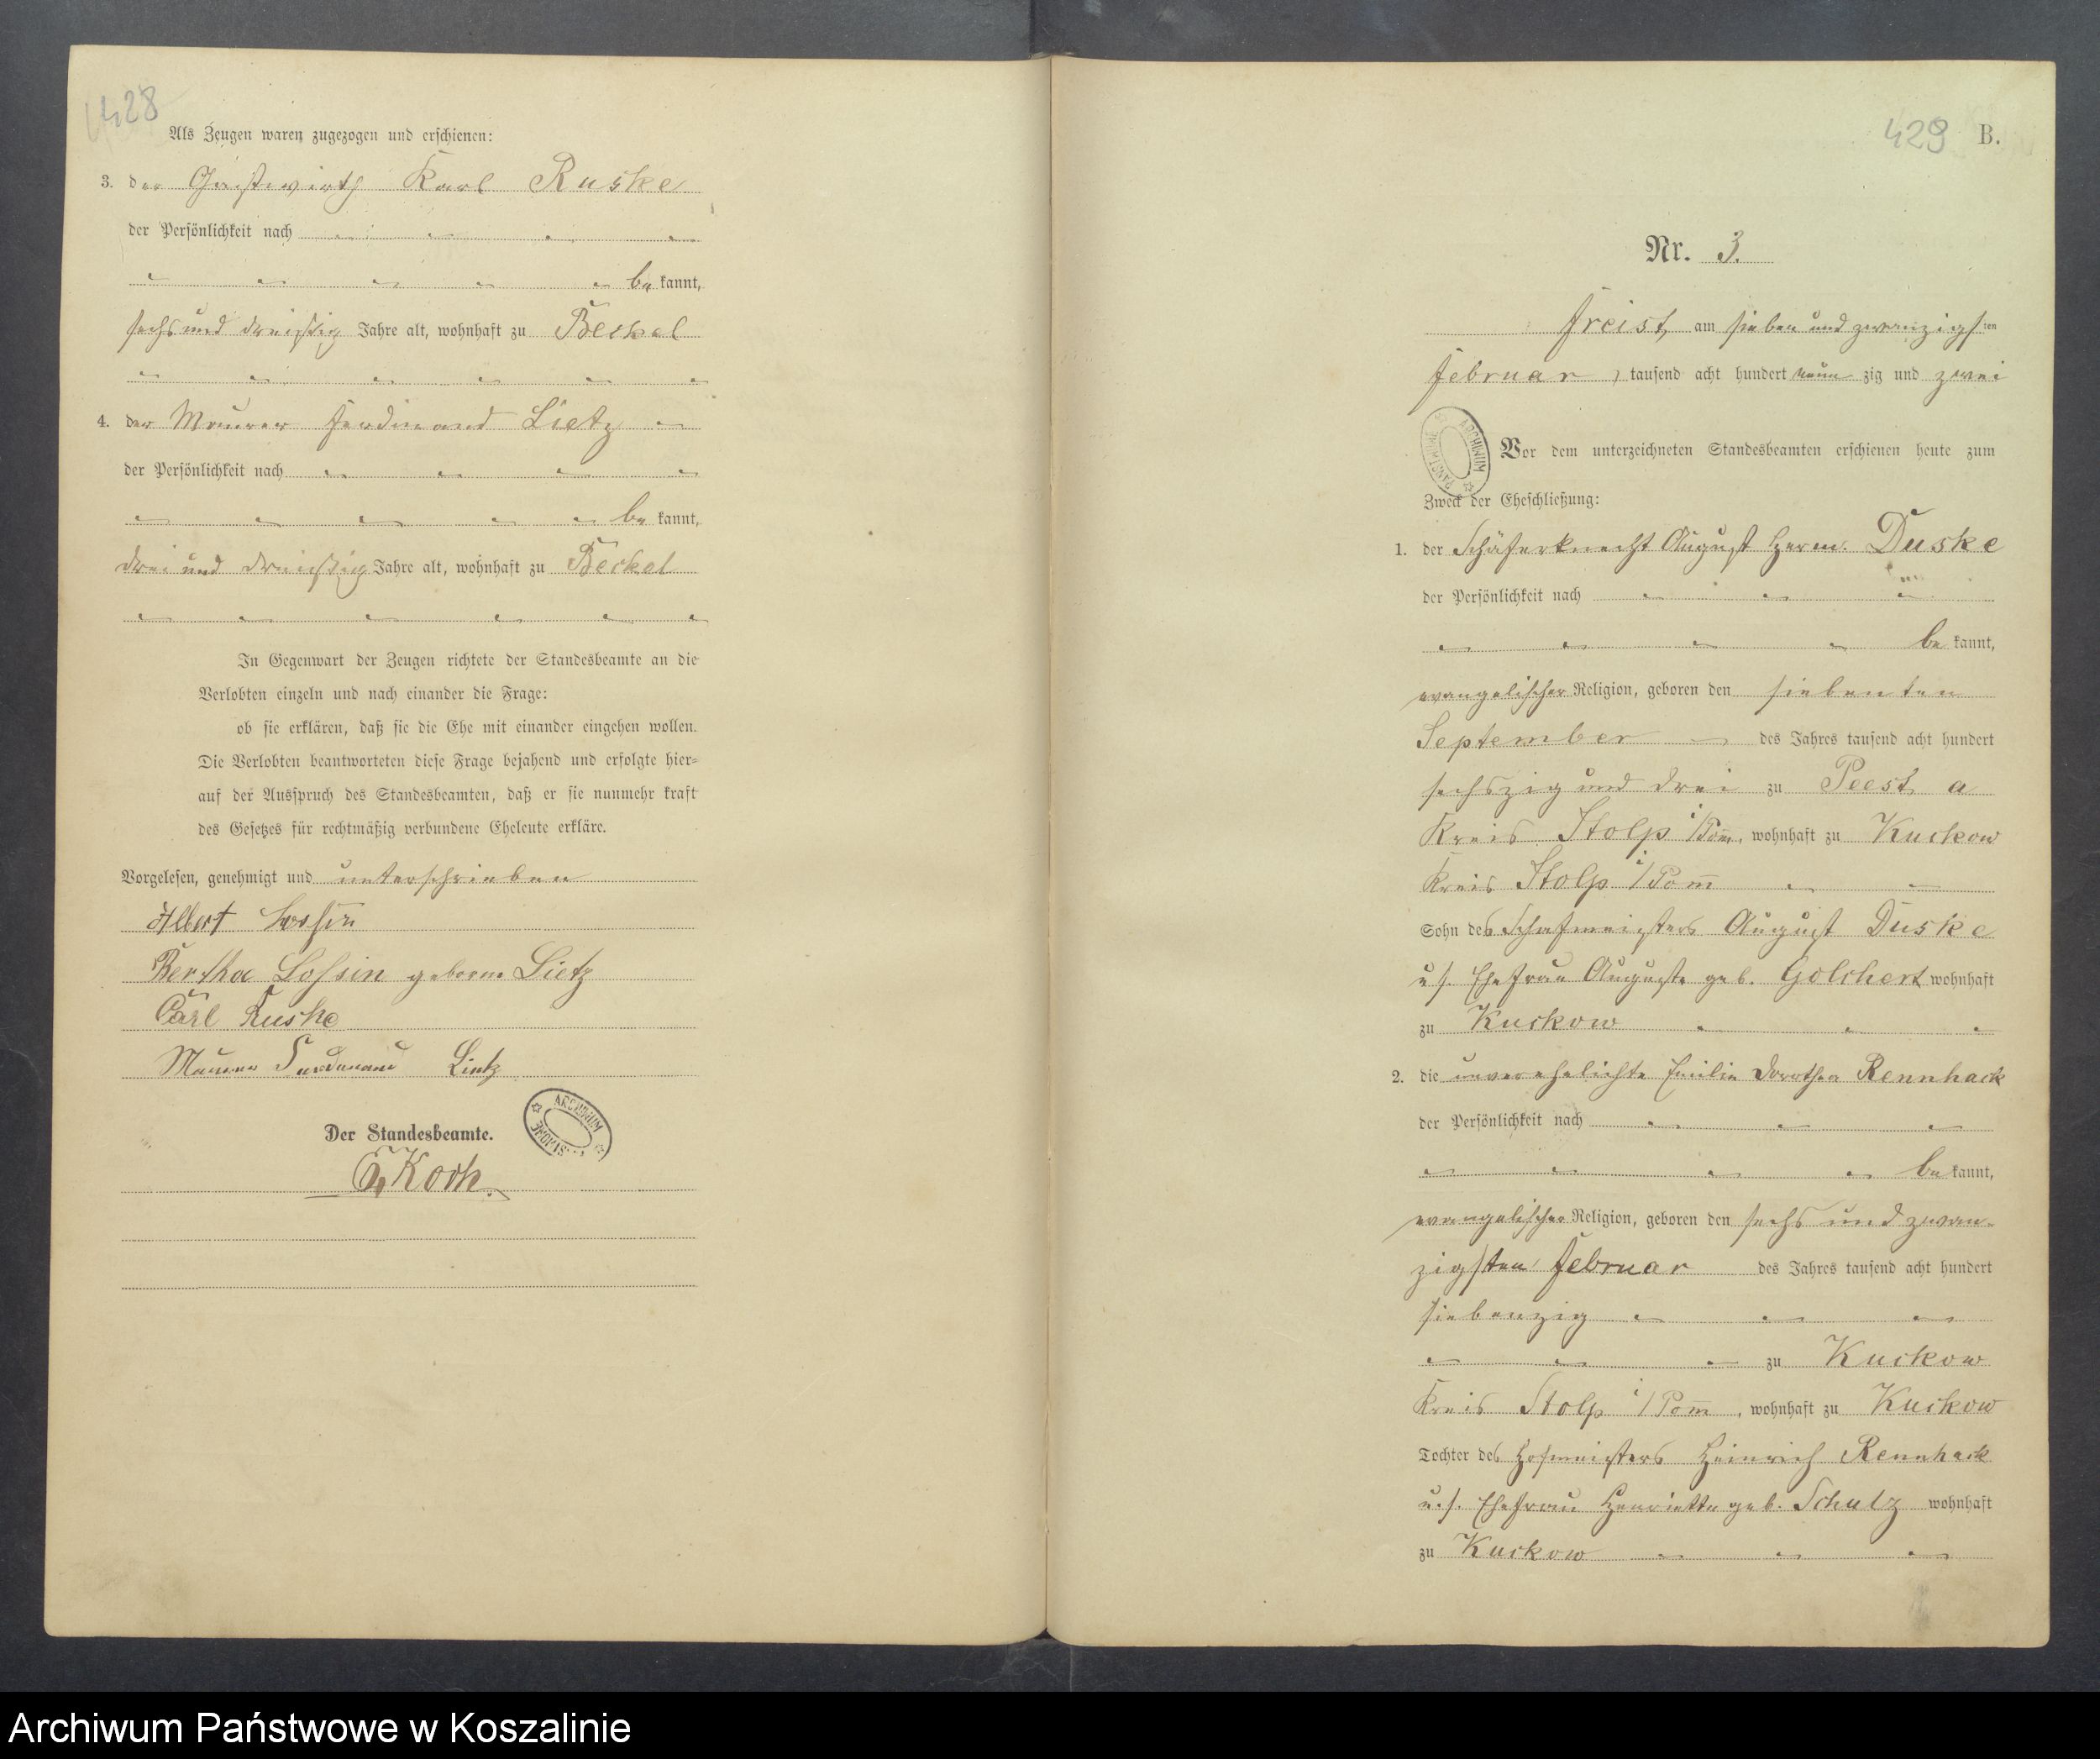 428
Als Zeugen waren zugezogen und erschienen:
3. der Gastwirth Karl Ruske
der Persönlichkeit nach
be kannt,
sechs und dreißig Jahre alt, wohnhaft zu Beckel
4. der Maurer Ferdinand Lietz
der Persönlichkeit nach
be kannt,
drei und dreißig Jahre alt, wohnhaft zu Beckel
In Gegenwart der Zeugen richtete der Standesbeamte an die
Verlobten einzeln und nach einander die Frage:
ob sie erklären, daß sie die Ehe mit einander eingehen wollen.
Die Verlobten beantworteten diese Frage bejahend und erfolgte hier-
auf der Ausspruch des Standesbeamten, daß er sie nunmehr kraft
des Gesetzes für rechtmäßig verbundene Eheleute erkläre.
Vorgelesen, genehmigt und unterschrieben
Albert Lossin
Bertha Lossin geborne Lietz
Carl Ruske
Maurer Ferdinand Lietz
Der Standesbeamte.
Koch.
429 B.
Nr. 3.
Freist, am sieben und zwanzigsten
Februar tausend acht hundert neun zig und zwei
Vor dem unterzeichneten Standesbeamten erschienen heute zum
Zweck der Eheschließung:
1. der Schäferknecht August Herm. Duske
der Persönlichkeit nach
be kannt,
evangelischer Religion, geboren den siebenten
September des Jahres tausend acht hundert
sechszig und drei zu Peest a
Kreis Stolp i/Pom, wohnhaft zu Kuckow
Kreis Stolp i/Pom̄
Sohn des Schafmeisters August Duske
u/s. Ehefrau Auguste geb. Golchert wohnhaft
zu Kuckow
2. die unverehelichte Emilie Dorothea Rennhack
der Persönlichkeit nach
be kannt,
evangelischer Religion, geboren den sechs und zwan-
zigsten Februar des Jahres tausend acht hundert
siebenzig
zu Kuckow
Kreis Stolp i/Pom̄, wohnhaft zu Kuckow
Tochter des Hofmeisters Heinrich Rennhack
u./s. Ehefrau Henriette geb. Schulz wohnhaft
zu Kuckow
Archiwum Państwowe w Koszalinie